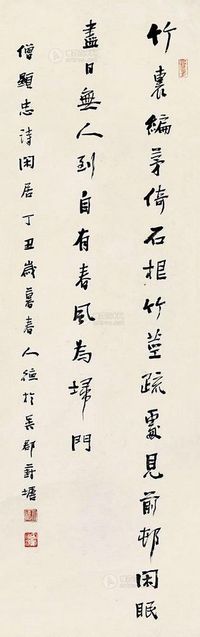 竹裏編茅倚石根竹莖疏處見前邨闲眠
盡日無人到自有春風為埽門
僧顯忠詩闲居丁丑歲暮春人德於吳郡葑塘